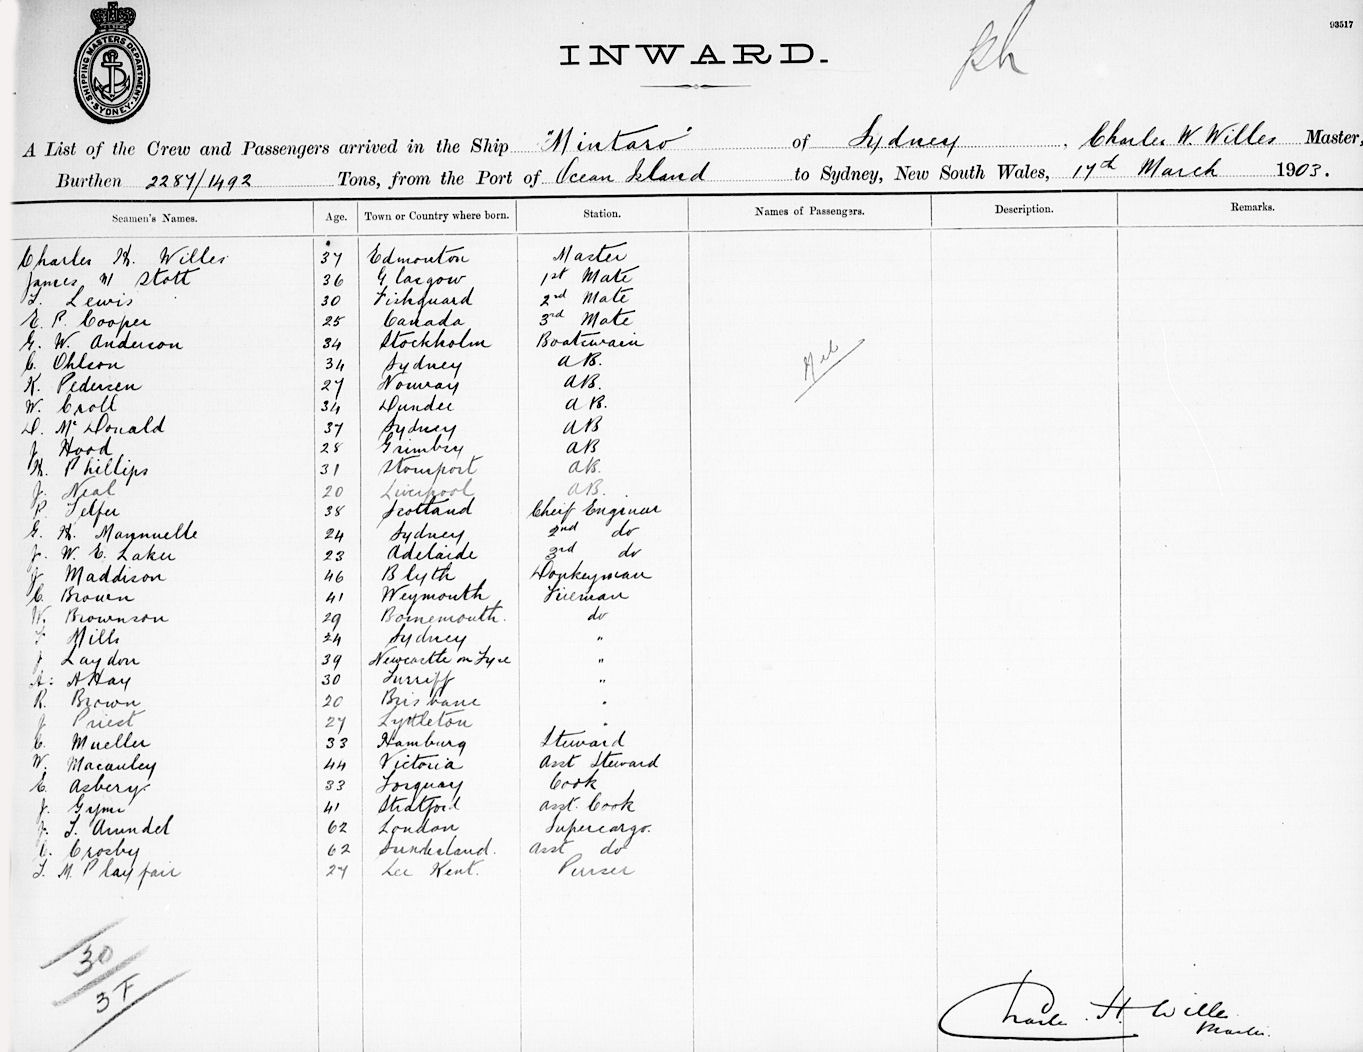 93517
SHIPPING MASTERS DEPARTMENT
SYDNEY
INWARD.
A List of the Crew and Passengers arrived in the Ship "Mintaro" of Sydney, Charles W. Willes Master,
Burthen 2287/1492 Tons, from the Port of Ocean Island to Sydney, New South Wales, 17th March 1903.
Seamen's Names. Age. Town or Country where born. Station. Names of Passengers. Description. Remarks.
Charles H. Willes 37 Edmonton Master
James M Stott 36 Glasgow 1st Mate
T. Lewis 30 Fishguard 2nd Mate
E. P. Cooper 25 Canada 3rd Mate
G. W. Anderson 34 Stockholm Boatswain
C. Ohlson 34 Sydney AB.
K. Pedersen 27 Norway AB.
W. Croll 34 Dundee AB.
D. McDonald 37 Sydney AB
J. Hood 28 Grimsby AB
H. Phillips 31 Stourport AB.
J. Neal 20 Liverpool AB.
P. Telfer 38 Scotland Cheif Engineer
G. H. Mannuelle 24 Sydney 2nd do
J. W. E. Laker 23 Adelaide 3rd do
J Maddison 46 Blyth Donkeyman
C. Brown 41 Weymouth Fireman
W. Brownson 29 Bornemouth. do
T Mills 24 Sydney "
J Laydon 39 Newcastle on Tyne "
A. A Hay 30 Turriff "
R. Brown 20 Brisbane "
J Priest 27 Lyttleton "
C. Mueller 33 Hamburg Steward
W. Macauley 44 Victoria Asst Steward
E. Asbery 33 Torquay Cook
J. 41 Stratford Asst. Cook
J. T. Arundel 62 London Supercargo.
C. Crosby 62 Sunderland. Asst do
T. M. Playfair 27 Lee Kent. Purser
30
3F
Charles H. Willes
Master.